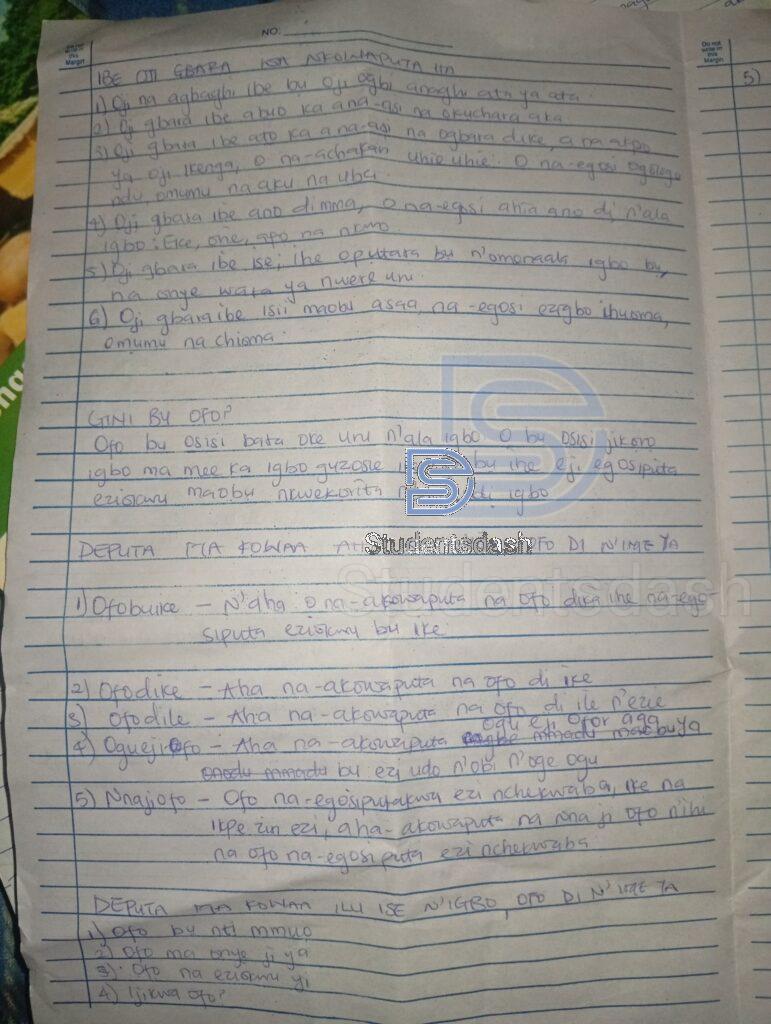 NO:
Do not write in this Margin
Do not write in this Margin
IBE OJI GBARA NA NKOWAPUTA
1) Oji na agbaghi ibe bu oji ogbi anaghi ata ya ata
2) Oji gbara ibe abuo ka ana-asi na okuchara aka
3) Oji gbara ibe ato ka ana-asi na ogbara dike, a na akpo
ya oji Ikenga, o na-achakari uhie uhie. O na-egosi ogologo
ndu, omumu na aku na uba.
4) Oji gbara ibe ano dimma, o na-egosi ahia ano di n'ala
igbo: Eke, orie, afo na nkwo
5) Oji gbara ibe ise; ihe oputara bu n'omenaala igbo bu,
na onye wara ya nwere uru.
6) Oji gbara ibe isii maobu asaa, na-egosi ezigbo ihuoma,
omumu na chioma.
GINI BU OFO?
Ofo bu osisi bara oke uru n'ala igbo O bu osisi jikoro
igbo ma mee ka igbo guzosie bu ihe eji egosiputa
eziokwu maobu nkwekorita di igbo
DEPUTA MA KOWAA OFO DI N'IME YA
5)
1) Ofobuike - N'aha o na-akowaputa na ofo dika ihe na-ego-
siputa eziokwu bu ike
2) Ofodike - Aha na-akowaputa na ofo di ike
3) Ofodile - Aha na-akowaputa na ofo di ile n'ezie
ogu eji ofor aga
4) Ogueji ofo - Aha na-akowaputa mmadu maobu ya
mmadu bu ezi udo n'obi n'oge ogu
5) Nnajiofo - Ofo na-egosiputakwa ezi nchekwaba, ike na
ikpe ziri ezi, aha-akowaputa na nna ji ofo n'ihi
na ofo na-egosiputa ezi nchekwaba
DEPUTA MA KOWAA ILU ISE N'IGBO, OFO DI N'IME YA
1) Ofo bu nti mmuo
2) Ofo ma onye ji ya
3) Ofo na eziokwu yi
4) Ijikwa ofo?
Studentsdash
Studentsdash